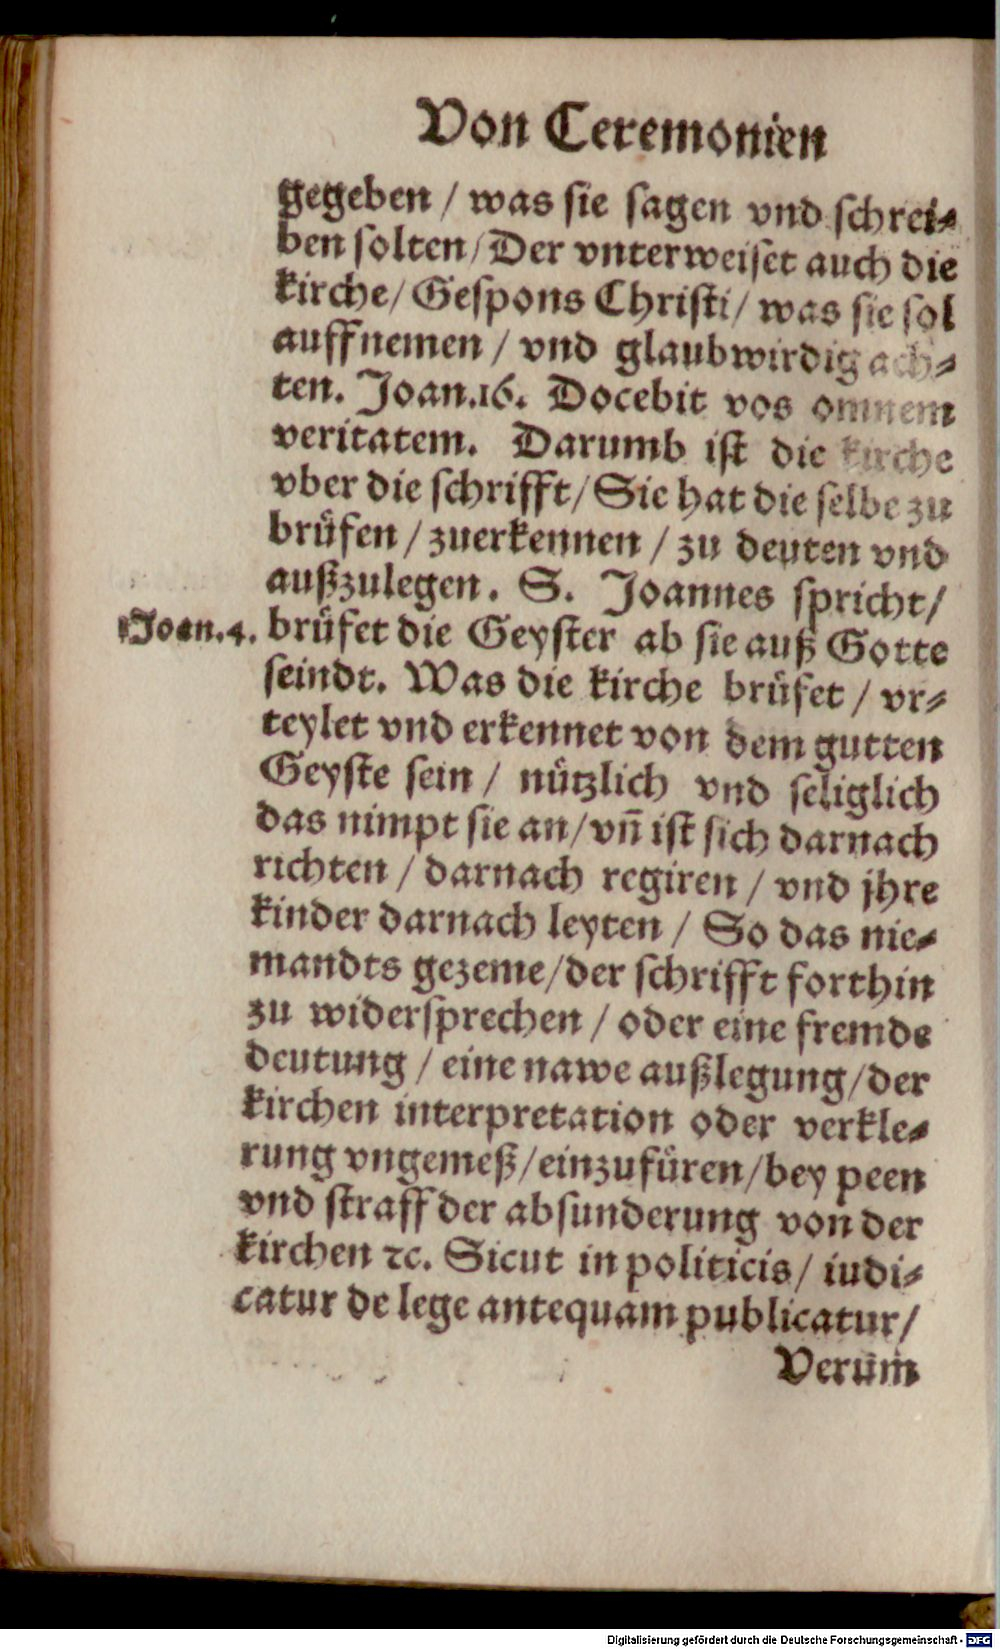 Von Ceremonien
gegeben / was sie sagen vnd schrei⸗
ben solten / Der vnterweiset auch die
kirche / Gespons Christi / was sie sol
auffnemen / vnd glaubwirdig ach⸗
ten. Joan.16. Docebit vos omnem
veritatem. Darumb ist die kirche
vber die schrifft / Sie hat die selbe zu
brüfen / zuerkennen / zu deuten vnd
außzulegen. S. Joannes spricht /
1.Joan.4. brüfet die Geyster ab sie auß Gotte
seindt. Was die kirche brüfet / vr⸗
teylet vnd erkennet von dem gutten
Geyste sein / nützlich vnd seliglich
das nimpt sie an / vñ ist sich darnach
richten / darnach regiren / vnd jhre
kinder darnach leyten / So das nie⸗
mandts gezeme / der schrifft forthin
zu widersprechen / oder eine fremde
deutung / eine nawe außlegung / der
kirchen interpretation oder verkle⸗
rung vngemeß / einzufüren / bey peen
vnd straff der absunderung von der
kirchen ꝛc. Sicut in politicis / iudi⸗
catur de lege antequam publicatur /
Verum
Digitalisierung gefördert durch die Deutsche Forschungsgemeinschaft - DFG